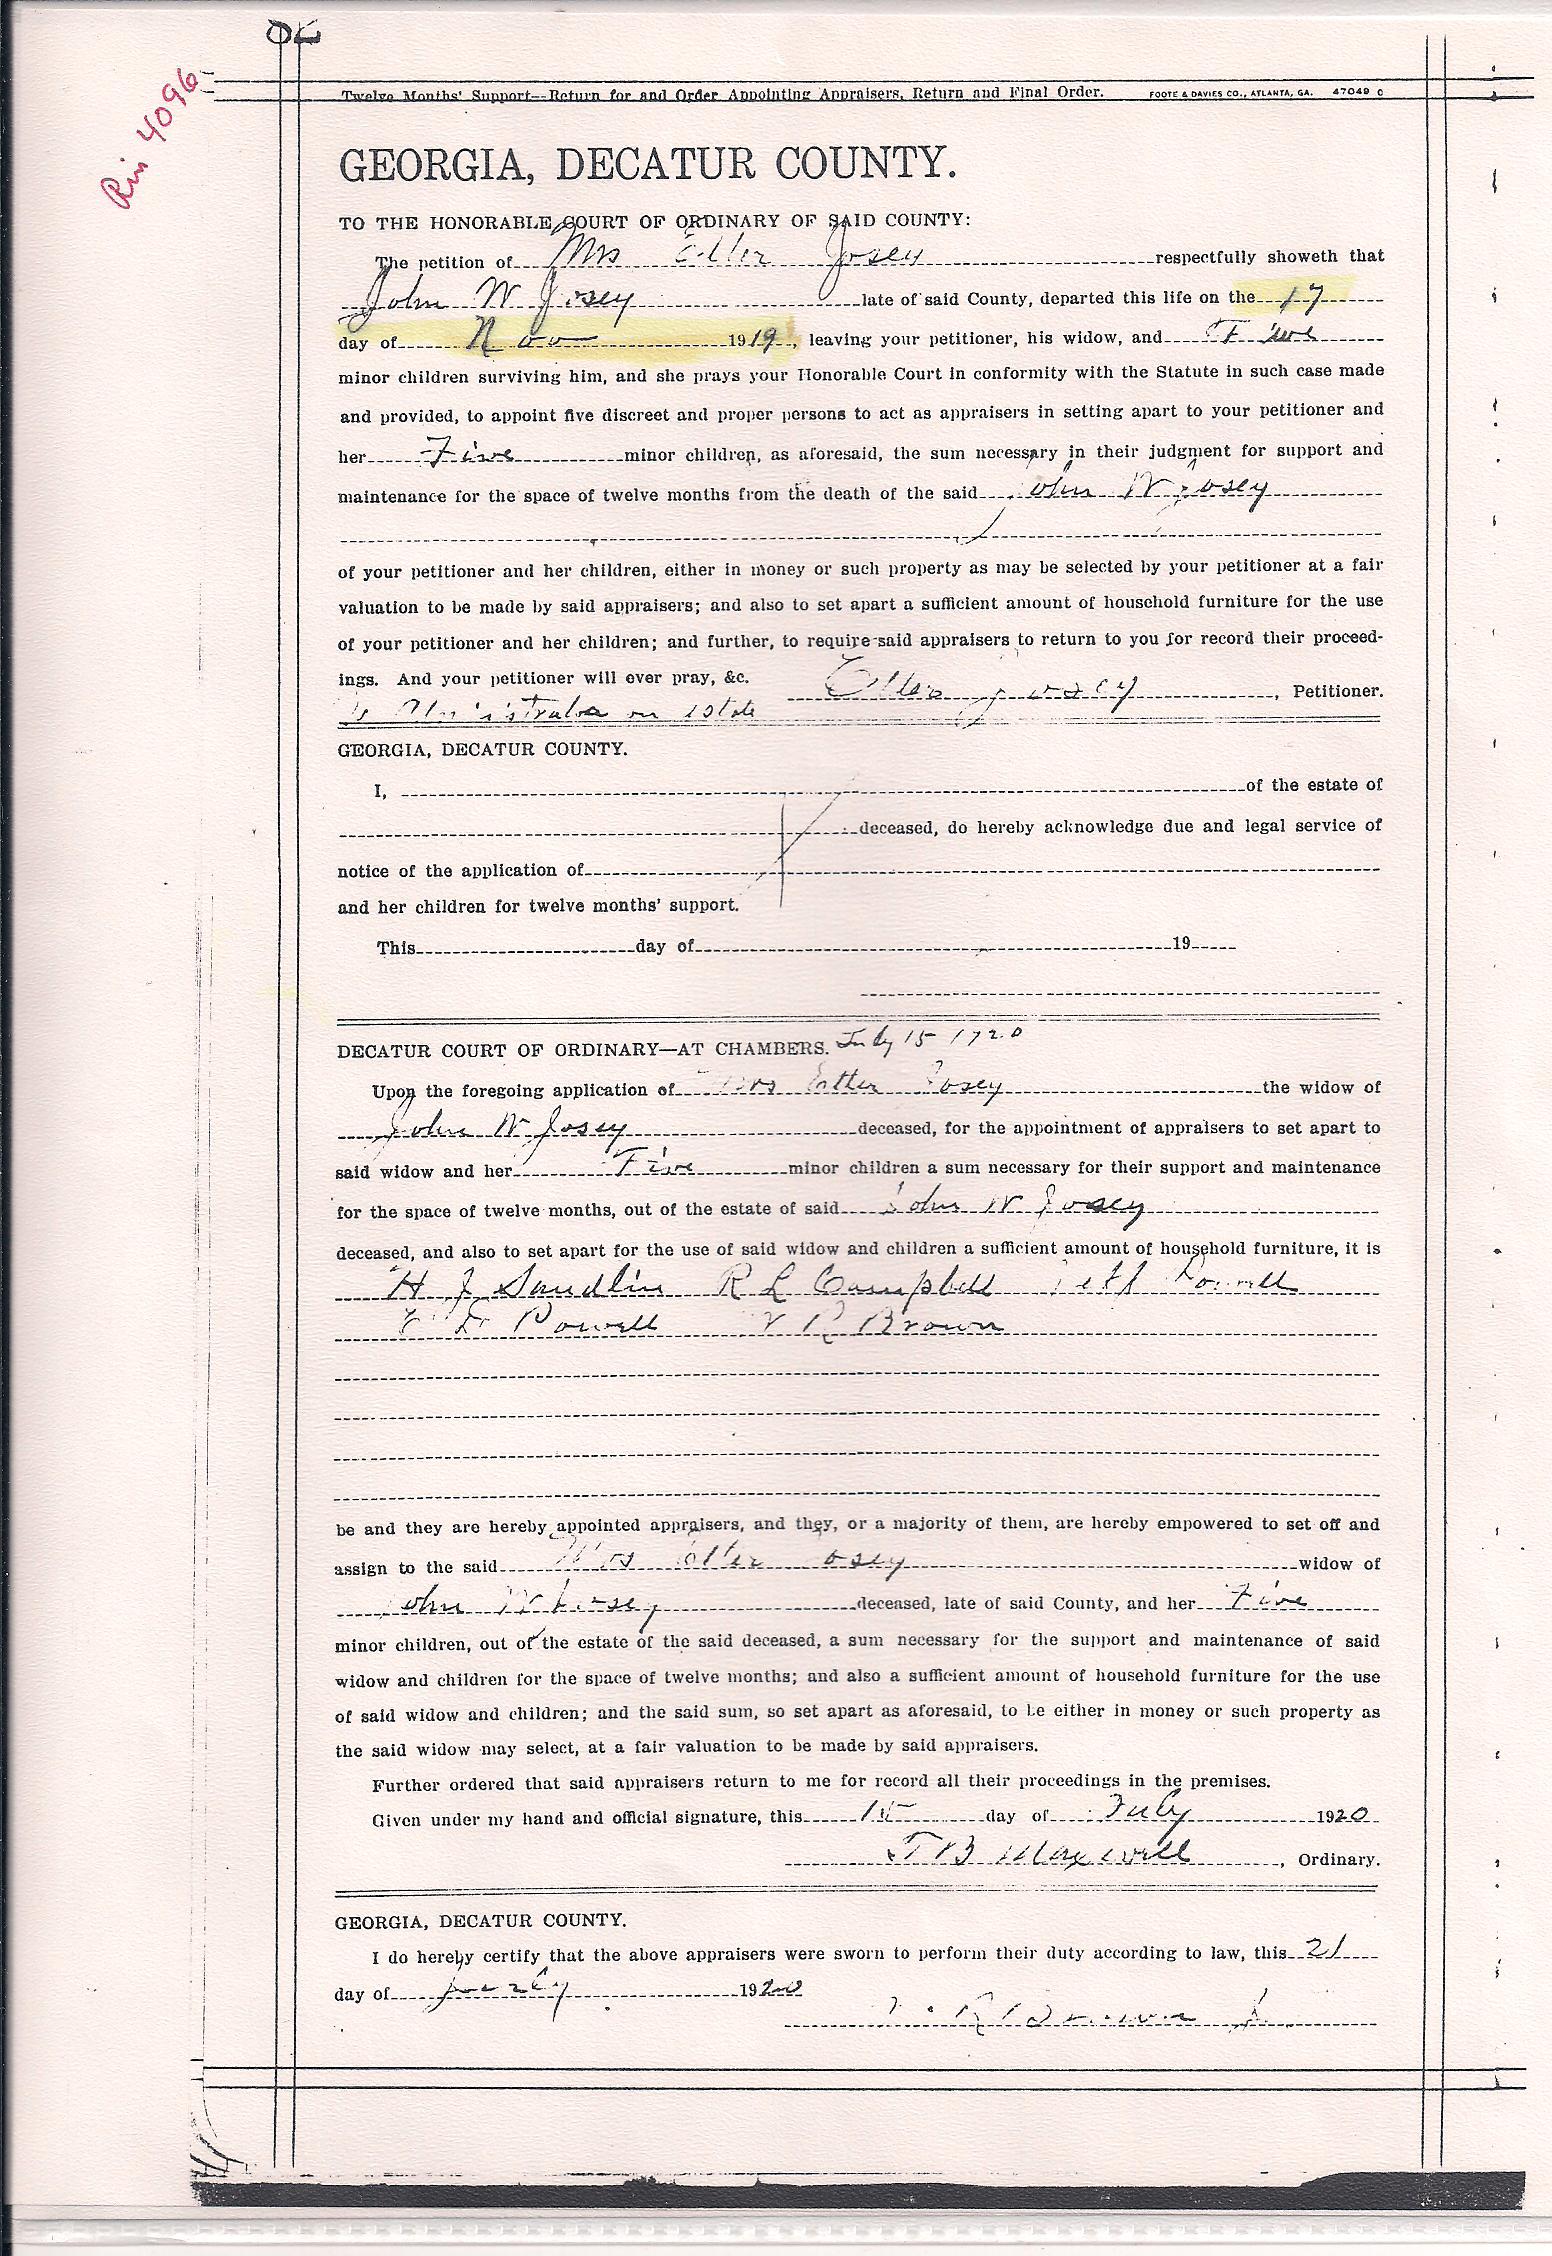 Rin 4096
Twelve Months' Support—Return for and Order Appointing Appraisers, Return and Final Order. FOOTE & DAVIES CO., ATLANTA, GA. 47049 C
GEORGIA, DECATUR COUNTY.
TO THE HONORABLE COURT OF ORDINARY OF SAID COUNTY:
The petition of Mrs Josey respectfully showeth that
John W Josey late of said County, departed this life on the 17
day of Nov 1919, leaving your petitioner, his widow, and Five
minor children surviving him, and she prays your Honorable Court in conformity with the Statute in such case made
and provided, to appoint five discreet and proper persons to act as appraisers in setting apart to your petitioner and
her Five minor children, as aforesaid, the sum necessary in their judgment for support and
maintenance for the space of twelve months from the death of the said John W Josey
of your petitioner and her children, either in money or such property as may be selected by your petitioner at a fair
valuation to be made by said appraisers; and also to set apart a sufficient amount of household furniture for the use
of your petitioner and her children; and further, to require said appraisers to return to you for record their proceed-
ings. And your petitioner will ever pray, &c. Josey, Petitioner.
on Estate
GEORGIA, DECATUR COUNTY.
I, of the estate of
deceased, do hereby acknowledge due and legal service of
notice of the application of
and her children for twelve months' support.
This day of 19
DECATUR COURT OF ORDINARY—AT CHAMBERS. July 15 1920
Upon the foregoing application of Mrs Josey the widow of
John W Josey deceased, for the appointment of appraisers to set apart to
said widow and her Five minor children a sum necessary for their support and maintenance
for the space of twelve months, out of the estate of said John W Josey
deceased, and also to set apart for the use of said widow and children a sufficient amount of household furniture, it is
H J Sandlin R L Campbell Powell
Powell R Brown
be and they are hereby appointed appraisers, and they, or a majority of them, are hereby empowered to set off and
assign to the said Mrs Josey widow of
John W Josey deceased, late of said County, and her Five
minor children, out of the estate of the said deceased, a sum necessary for the support and maintenance of said
widow and children for the space of twelve months; and also a sufficient amount of household furniture for the use
of said widow and children; and the said sum, so set apart as aforesaid, to be either in money or such property as
the said widow may select, at a fair valuation to be made by said appraisers.
Further ordered that said appraisers return to me for record all their proceedings in the premises.
Given under my hand and official signature, this 15 day of July 1920
T B Maxwell, Ordinary.
GEORGIA, DECATUR COUNTY.
I do hereby certify that the above appraisers were sworn to perform their duty according to law, this 21
day of July 1920
R Brown